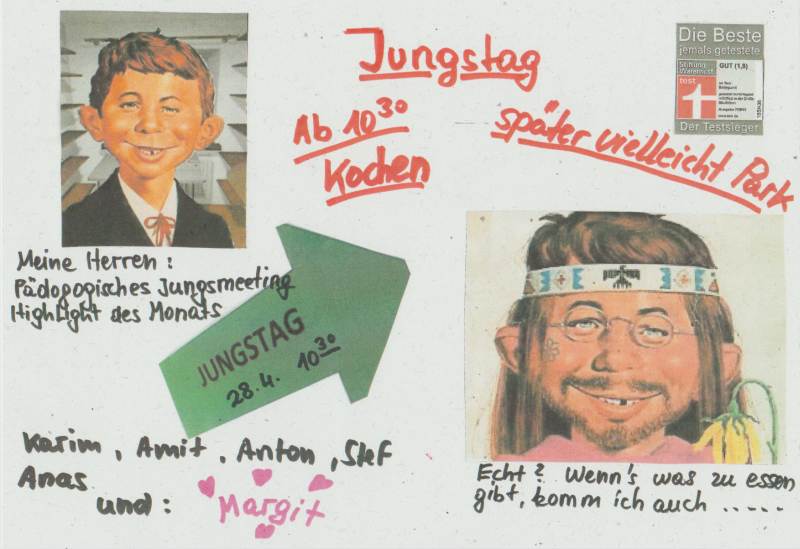 Jungstag
Ab 10³⁰
Kochen
später vielleicht Park
Die Beste
jemals getestete
Stiftung
Warentest
test
GUT (1,8)
Der Testsieger
Meine Herren:
Pädogogisches Jungsmeeting
Highlight des Monats
JUNGSTAG
28.4. 10³⁰
Karim, Amit, Anton, Stef
Anas
und: Margit
Echt? Wenn's was zu essen
gibt, komm ich auch .....